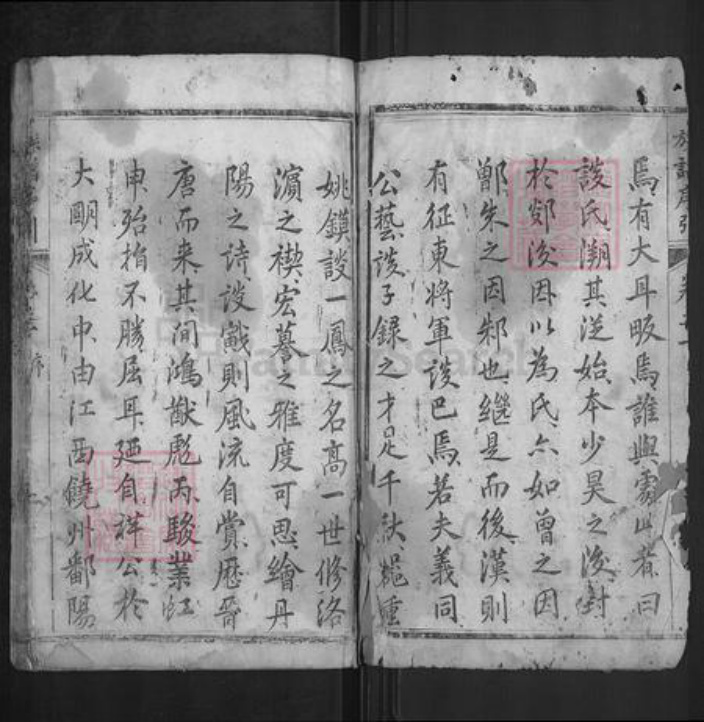 焉有大耳昄焉誰與處此者曰
談氏溯其從始本少昊之後封
於郯後因以為氏亦如曾之因
鄫朱之因邾也継是而後漢則
有征東將軍談巴焉若夫義同
公藝談子録之才足千秋範重
姚鏌談一鳳之名高一世修洛
濱之禊宏謩之雅度可思繪丹
陽之诗談戭則風流自賞歷晉
唐而来其间鴻猷彪炳駿業虹
申殆指不勝屈耳廼自祥公於
大明成化中由江西饒州鄱陽